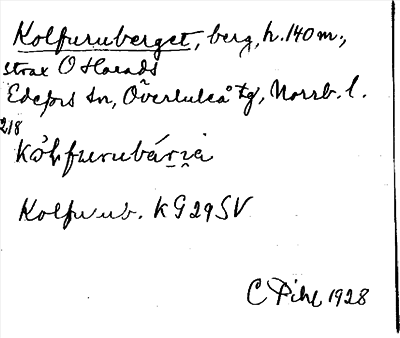 Kolfuruberget, berg, h. 140 m.,
strax O Harads
Edefors sn, Överluleå tg, Norrb. l.
2/8
Kolfurub. KG29SV
C Pihl 1928